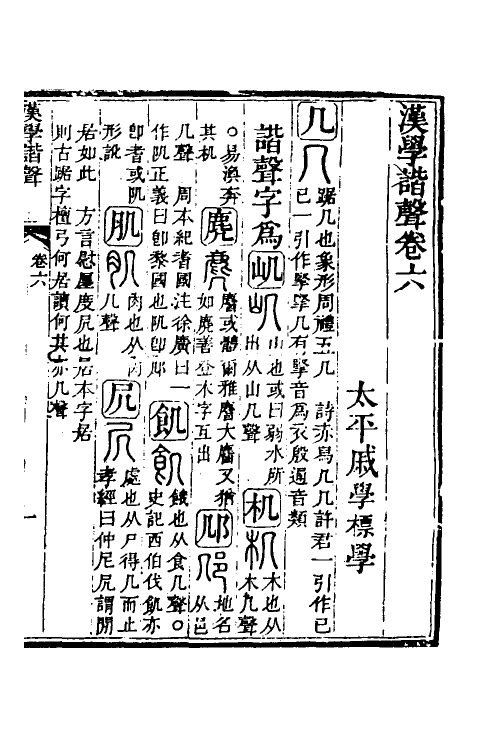 漢學諧聲卷六
太平戚學標學
几 踞几也象形周禮五几 詩赤舄几几許君一引作己
己一引作掔掔几有掔音爲衣殷通音類
諧聲字爲
屼 山也或曰弱水所
出从山几聲
机 木也从
木几聲
○易渙奔
其机
麂 麏或體爾雅麏大麏又猶
如麂善登木字互出
邜 地名
从邑
几聲 周本紀耆國注徐廣曰一
作阢正義曰卽黎國也阢卽邜
飢 餓也从食几聲○
史記西伯伐飢亦
卽耆或阢
形說
肌 肉也从肉
几聲
凥 處也从尸得几而止
孝經曰仲尼凥謂閒
居如此 方言慰廛度凥也居本字居
則古踞字檀弓何居讀何其亦几聲
漢學諧聲
卷六
一